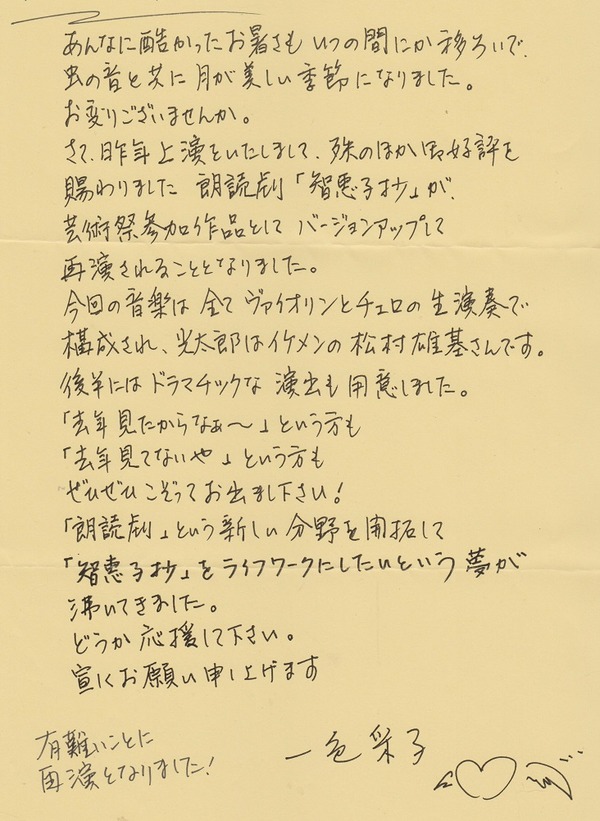 あんなに酷かったお暑さも いつの間にか移ろいで、
虫の音と共に月が美しい季節になりました。
お変りございませんか。
さて、昨年上演をいたしまして、殊のほか御好評を
賜わりました 朗読劇「智恵子抄」が、
芸術祭参加作品として バージョンアップして
再演されることとなりました。
今回の音楽は全てヴァイオリンとチェロの生演奏で
構成され、光太郎はイケメンの松村雄基さんです。
後半にはドラマチックな演出も用意しました。
「去年見たからなぁ〜」という方も
「去年見てないや」という方も
ぜひぜひこぞってお出まし下さい!
「朗読劇」という新しい分野を開拓して
「智恵子抄」をライフワークにしたいという夢が
沸いてきました。
どうか応援して下さい。
宜くお願い申し上げます
一色采子
有難いことに
再演となりました!